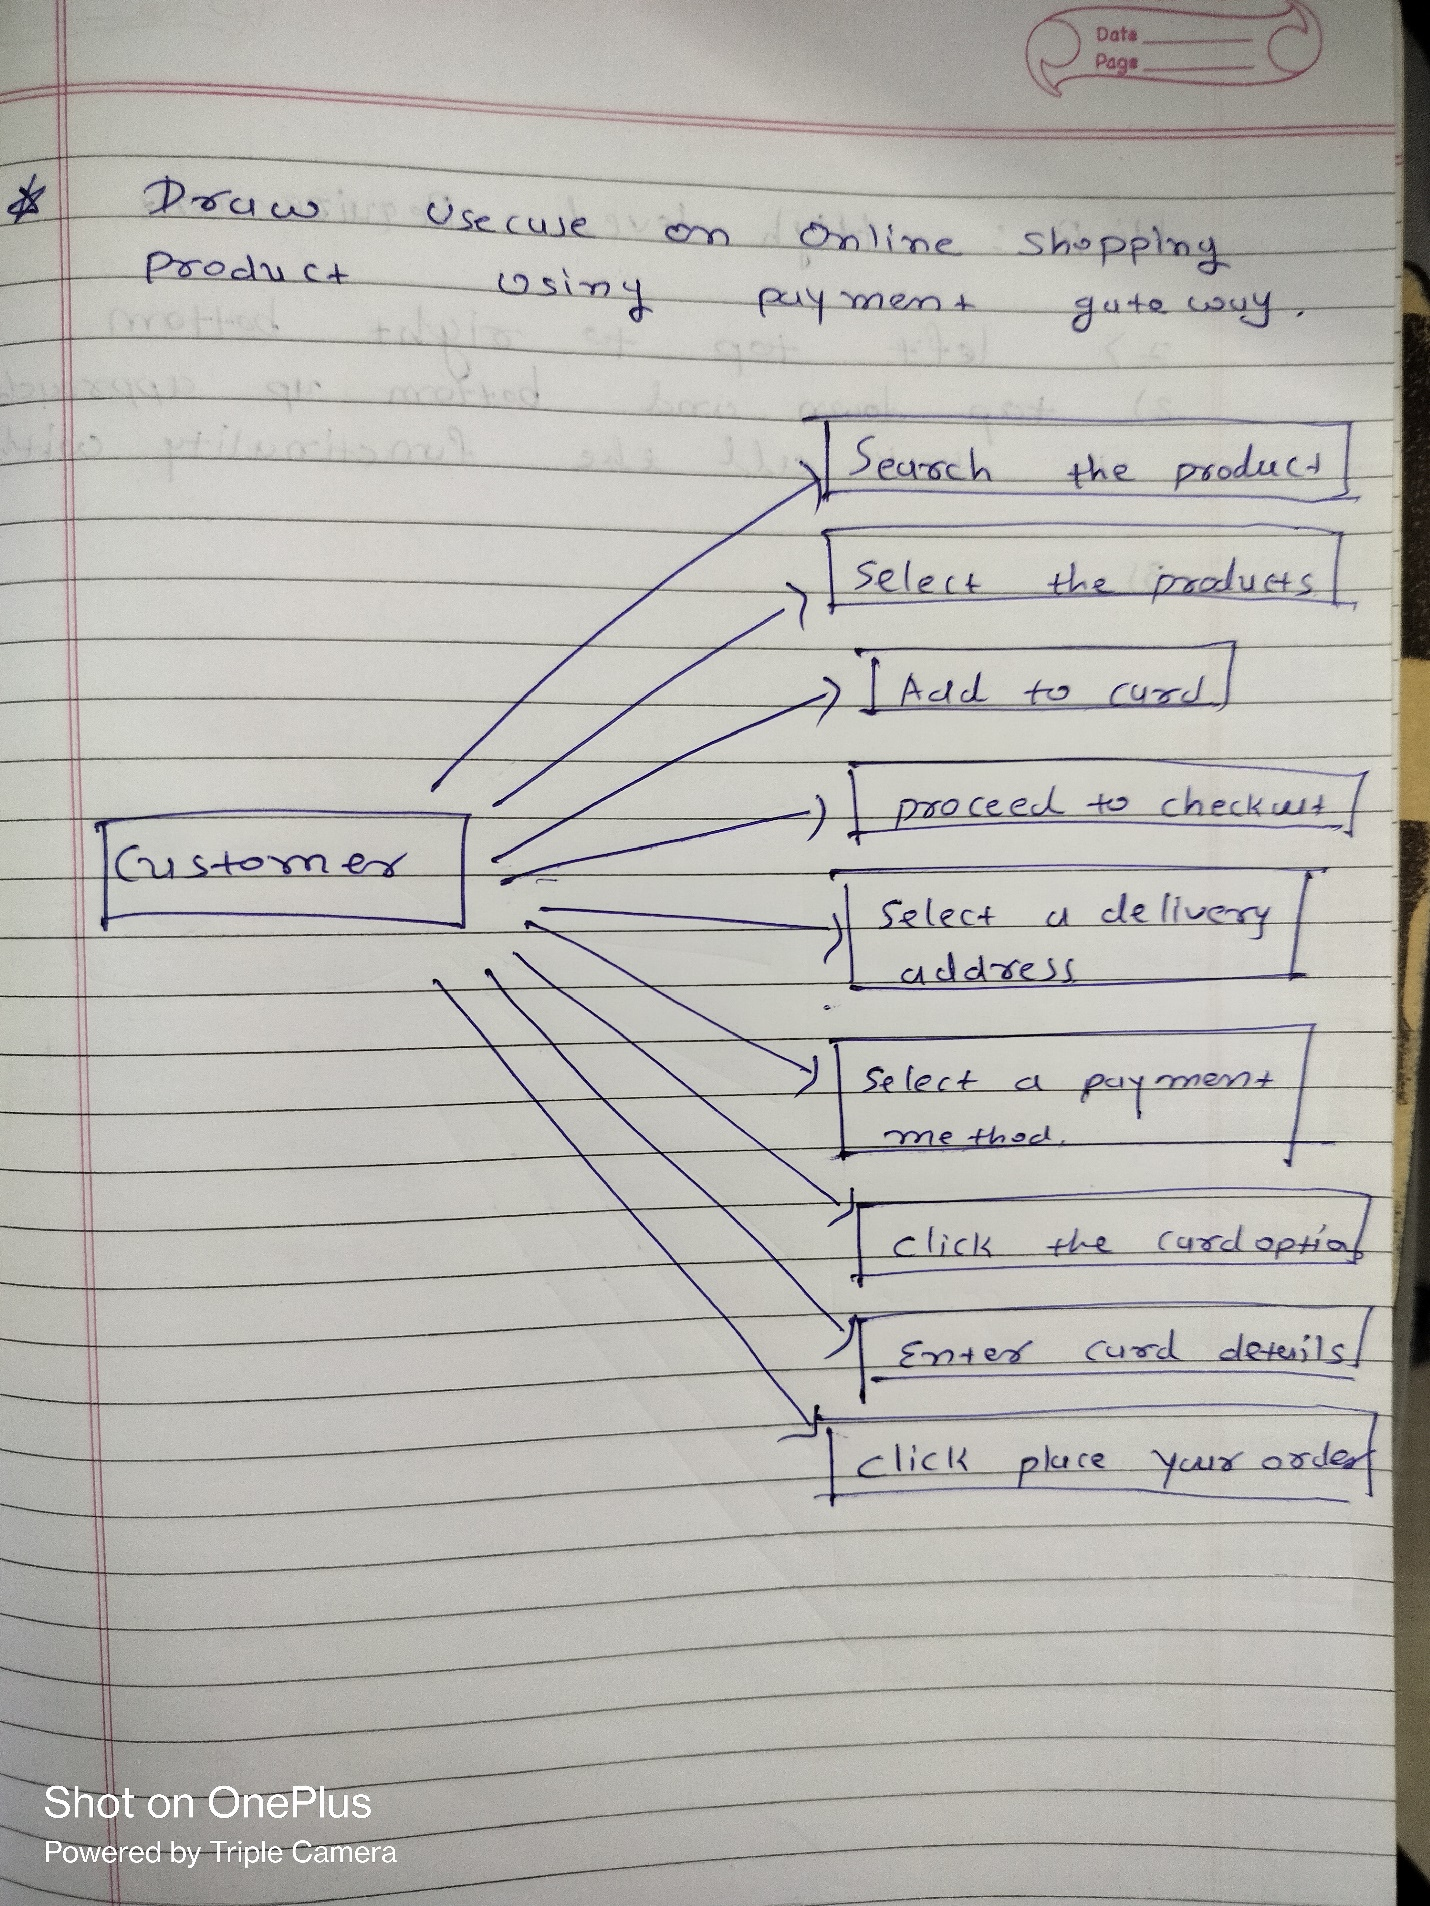 Date
Page
* Draw Usecase on Online shopping
product using payment gateway.
Search the product
Select the products
Add to card
proceed to checkout
Customer
Select a delivery
address
Select a payment
method.
click the card option
Enter card details
click place your order
Shot on OnePlus
Powered by Triple Camera